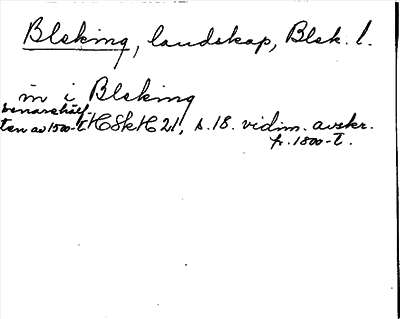 Bleking, landskap, Blek. l.
in i Bleking
senare hälf-
ten av 1500-t HSkH 21, s. 18. vidim. avskr.
fr. 1800-t.